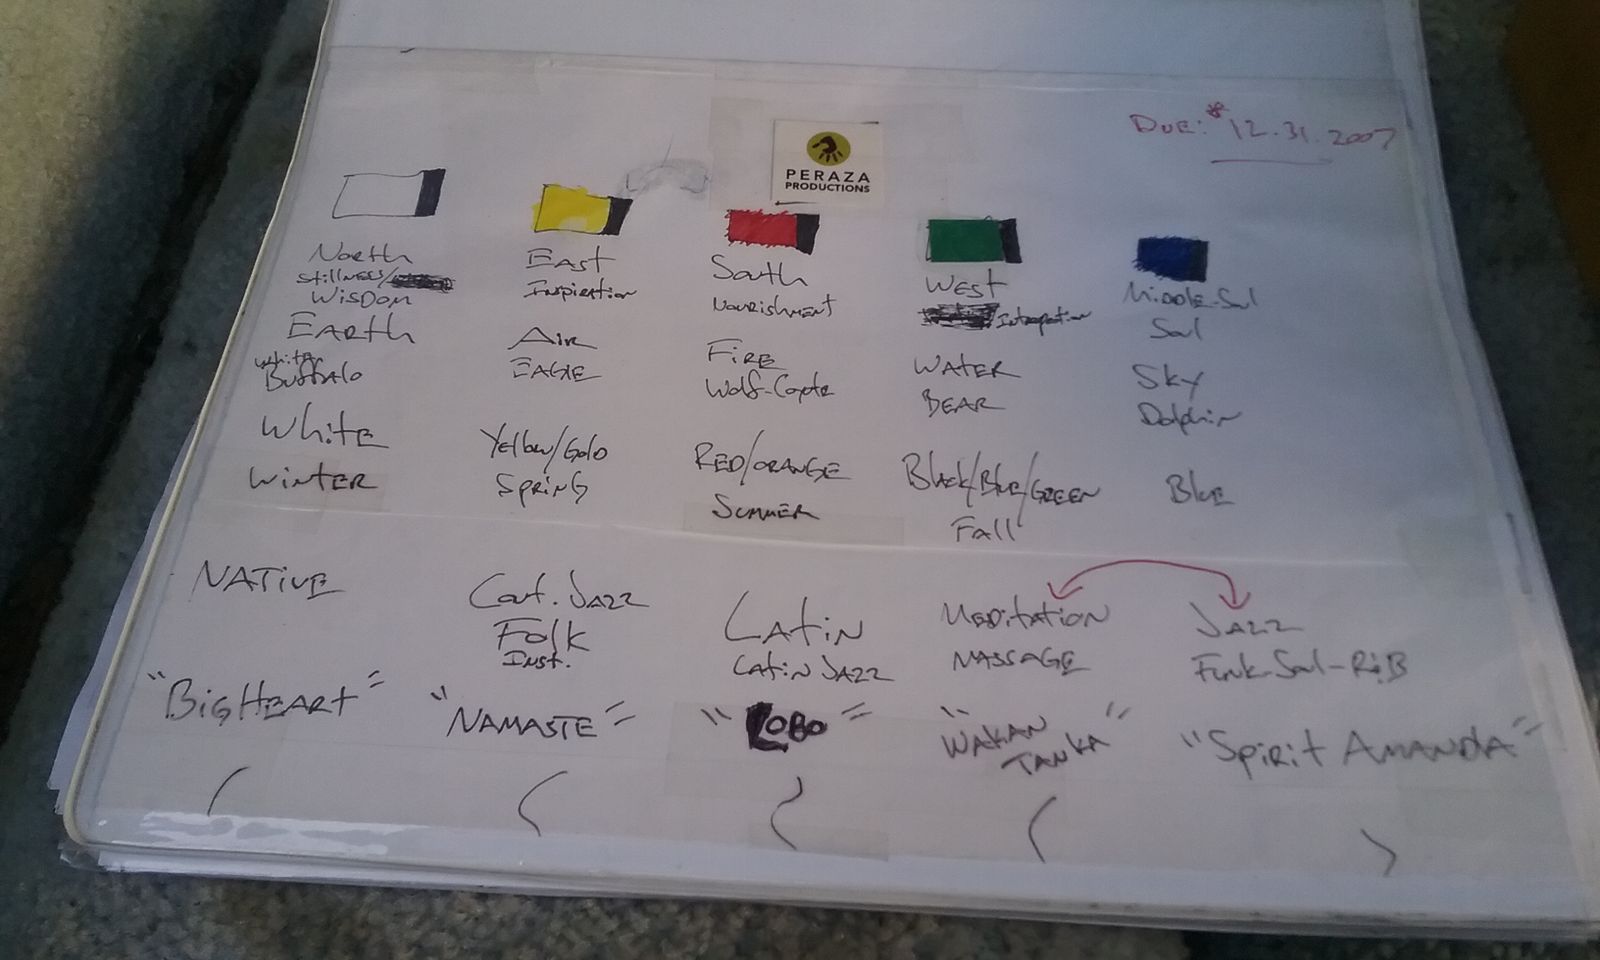 Due:* 12.31.2007
PERAZA
PRODUCTIONS
North
Stillness/
Wisdom
Earth
White
Buffalo
White
Winter
East
Inspiration
Air
Eagle
Yellow/Gold
Spring
South
Nourishment
Fire
Wolf-Coyote
Red/Orange
Summer
West
Water
Bear
Black/Blue/Green
Fall
Middle-Soul
Soul
Sky
Dolphin
Blue
Native
"BigHeart"
Cont. Jazz
Folk
Inst.
"Namaste"
Latin
Latin Jazz
"Lobo"
Meditation
Massage
"Wakan
Tanka"
Jazz
Funk-Soul-R&B
"Spirit Amanda"